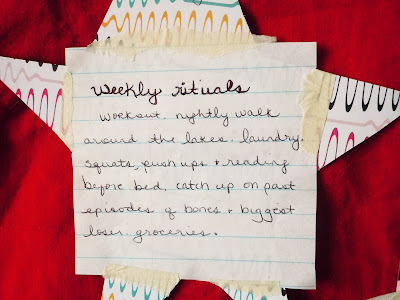 weekly rituals
workout. nightly walk
around the lakes. laundry.
squats, push ups + reading
before bed. catch up on past
episodes of bones + biggest
loser. groceries.